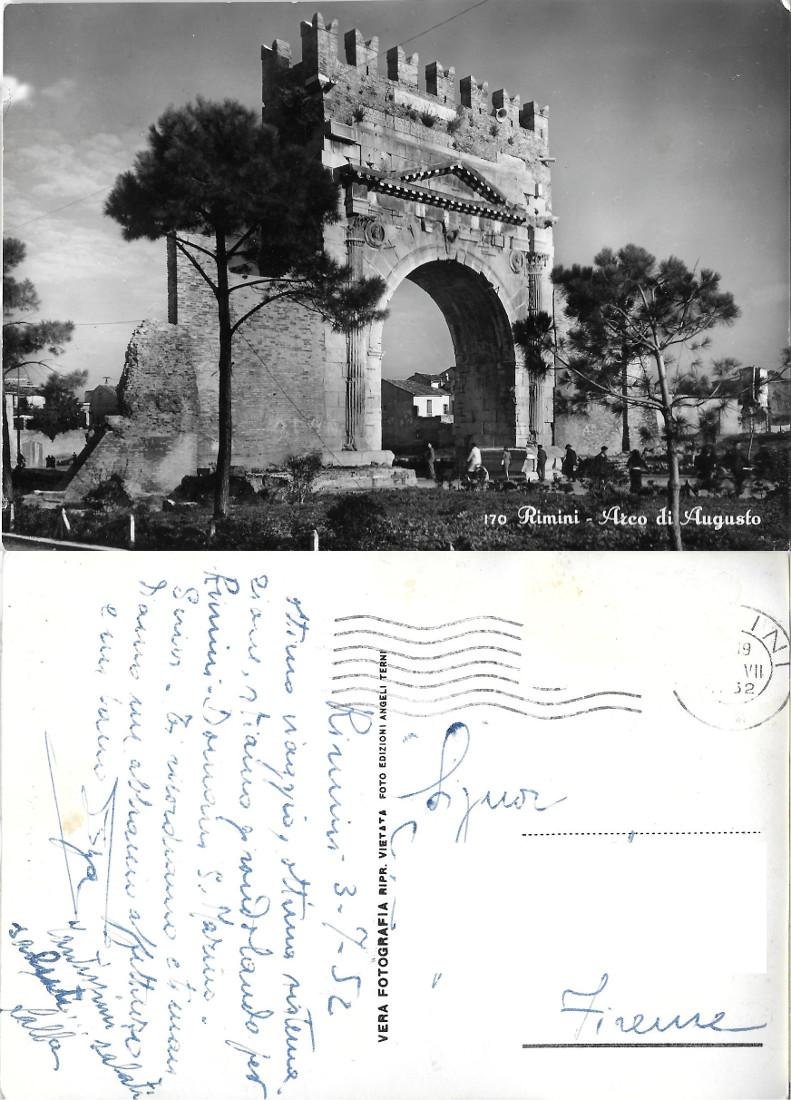 170 Rimini - Arco di Augusto
INI
19
VII
52
Rimini - 3-7-52
Ottimo viaggio, ottima sistema
zione, stiamo girondolando per
Rimini - Domani S. Marino.
ti ricordiamo e ti man
diamo un abbraccio affettuoso
e un bacio
saluti
VERA FOTOGRAFIA RIPR. VIETATA FOTO EDIZIONI ANGELI TERNI
Signor
Firenze